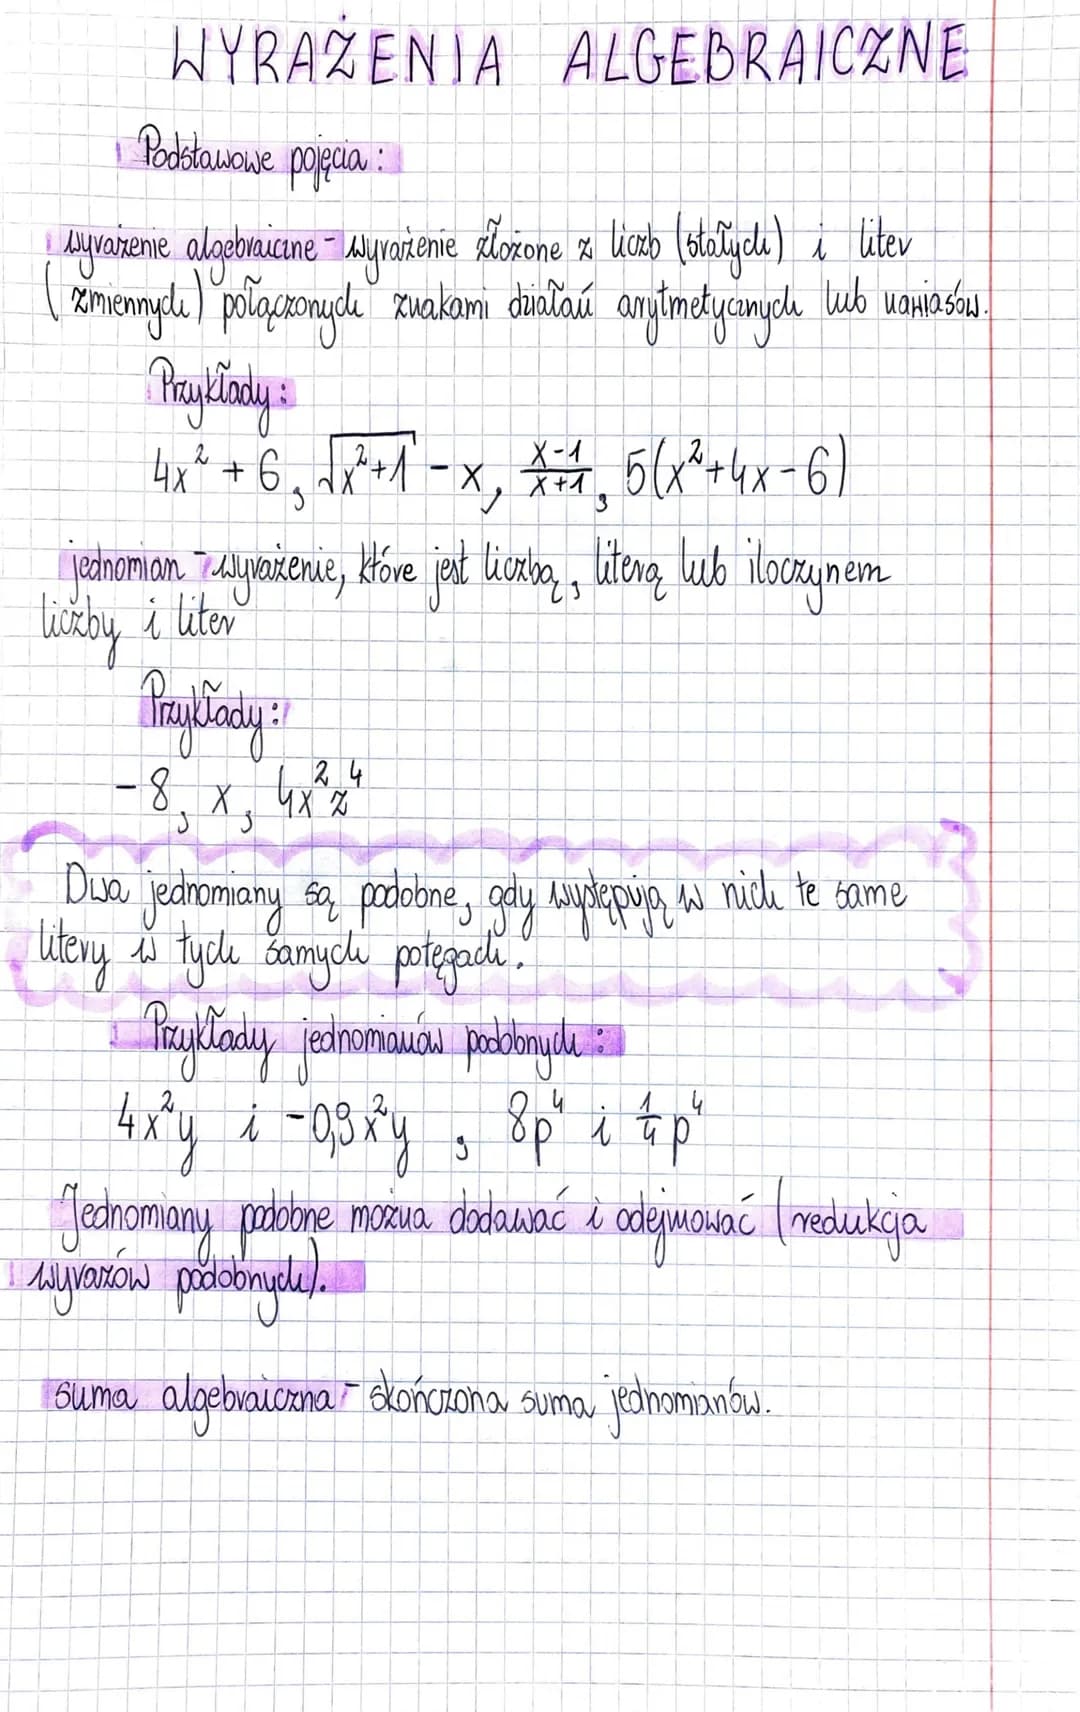 WYRAŻENIA ALGEBRAICZNE
Podstawowe pojęcia:
wyrażenie algebraiczne - wyrażenie złożone z liczb (stałych) i liter
(zmiennych) połączonych znakami działań arytmetycznych lub nawiasów.
Przykłady:
4x² + 6, √(x²+1) - x, (x-1)/(x+1), 5(x²+4x-6)
jednomian - wyrażenie, które jest liczbą, literą lub iloczynem
liczby i liter
Przykłady:
-8, x, 4x²z⁴
Dwa jednomiany są podobne, gdy występują w nich te same
litery w tych samych potęgach.
Przykłady jednomianów podobnych:
4x²y i -0,9x²y, 8p⁴ i 1/4 p⁴
Jednomiany podobne można dodawać i odejmować (redukcja
wyrazów podobnych).
suma algebraiczna - skończona suma jednomianów.